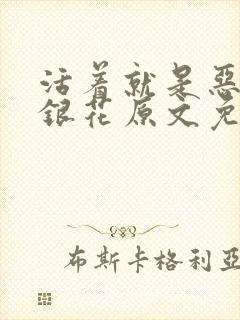 活着就是恶
銀花原文免
布斯卡格利亚